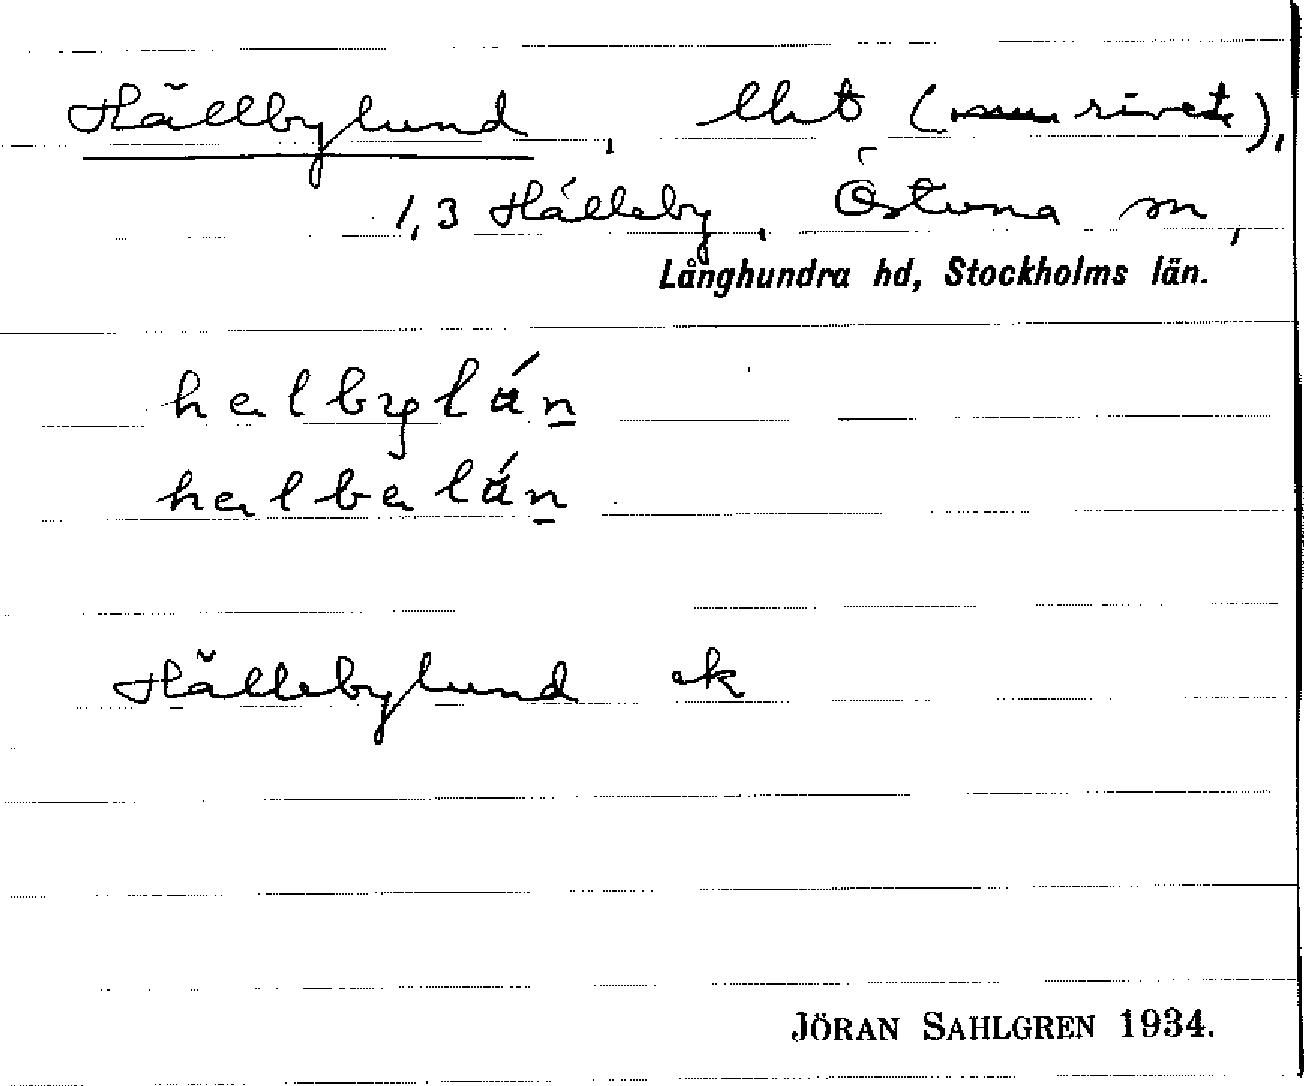 Hällbylund, lht (nu rivet),
1,3 Hälleby, Östuna sn,
Långhundra hd, Stockholms län.
halbylán
halbalán
Hällebylund ek
JÖRAN SAHLGREN 1934.